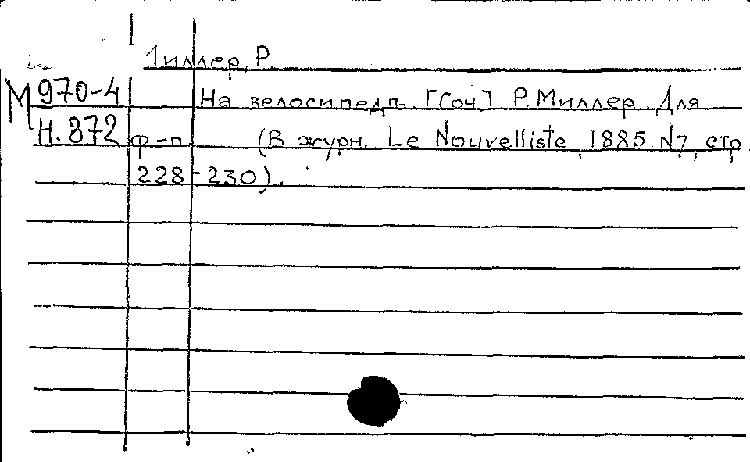 Миллер, Р.
М 970-4 На велосипедѣ. [Соч.] Р. Миллер. Для
Н. 872 ф-п. (В журн. Le Nouvelliste, 1885 N7, стр.
228-230).